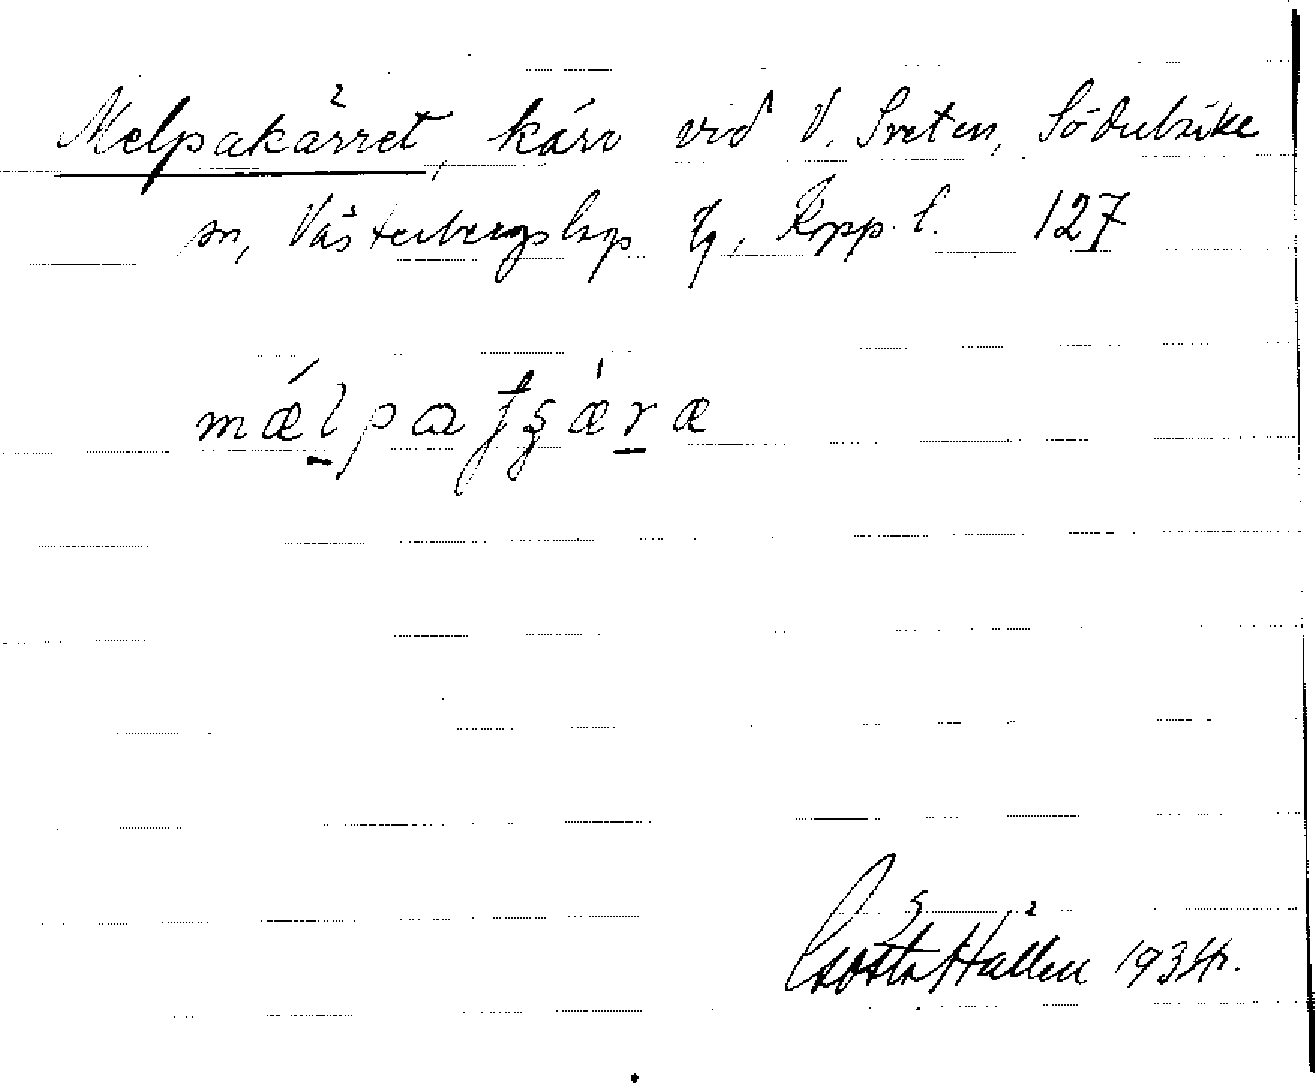 Melpakärret, kärr vid V. Sveten, Söderbärke
sn, Västerbergslags tg, Kopp. l. 127
Gösta Hallén 1934.